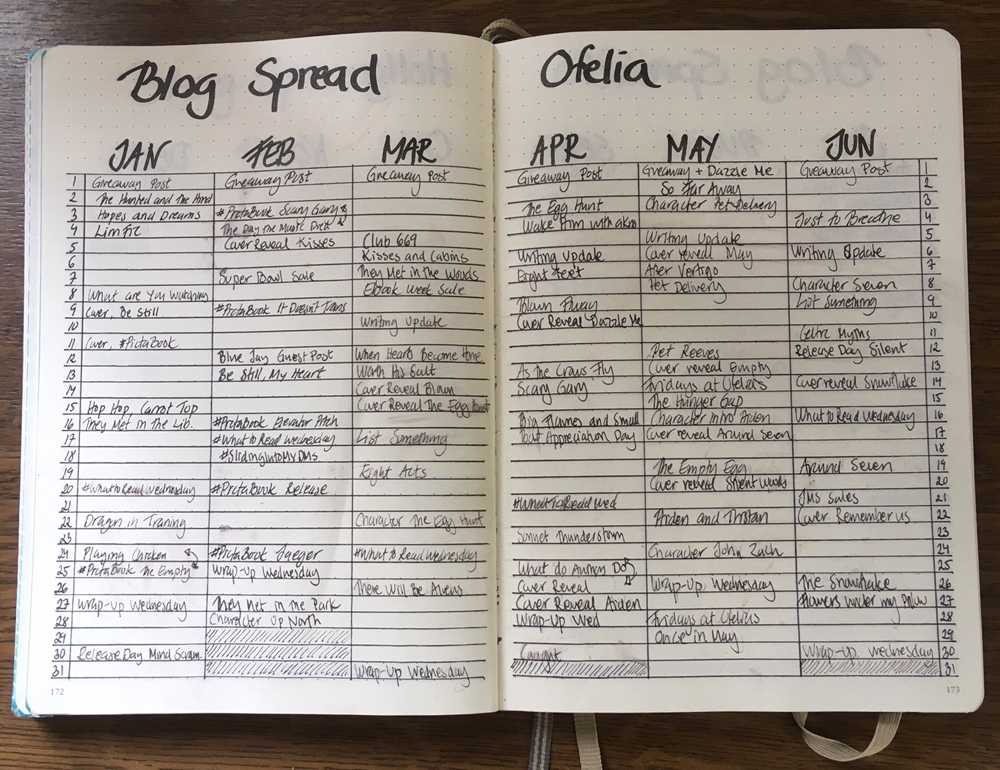 Blog Spread Ofelia
JAN FEB MAR APR MAY JUN
1 Giveaway Post Giveaway Post Giveaway Post Giveaway Post Giveaway + Dazzle Me Giveaway Post 1
2 The Hunted and the Hind So Far Away 2
3 Hopes and Dreams #PictaBook Scary Gary The Egg Hunt Character Pet Delivery 3
4 Limfic The Day the Music Died Wake Him with Just to Breathe 4
5 Cover Reveal Kisses Club 669 Writing Update 5
6 Kisses and Cabins Writing Update Cover reveal May Writing Update 6
7 Super Bowl Sale They Met in the Woods Eight Feet After Vertigo 7
8 What are You Watching Ebook Week Sale Pet Delivery Character Seven 8
9 Cover, Be Still #PictaBook It Doesn't Blown Away List Something 9
10 Writing Update Cover Reveal Dazzle Me 10
11 Cover, #PictaBook Celtic Myths 11
12 Blue Jay Guest Post When Hearts Become Home Pet Reeves Release Day Silent 12
13 Be Still, My Heart Worth His Salt As the Crows Fly Cover reveal Empty 13
14 Cover Reveal Blown Scary Gary Fridays at Ofelia's Cover reveal Snowflake 14
15 Hop Hop, Carrot Top Cover Reveal The Egg Hunt The Hunger Gap 15
16 They Met in the Lib. #PictaBook Elevator Pitch Big Flames and Small Character intro Aiden What to Read Wednesday 16
17 #What to Read Wednesday List Something Appreciation Day Cover reveal Around Seven 17
18 #SlidingIntoMyDMs 18
19 Right Acts The Empty Egg Around Seven 19
20 #WhattoRead Wednesday #PictaBook Release Cover reveal Silent Woods 20
21 #WhatToReadWed JMS Sales 21
22 Dragon in Training Character The Egg Hunt Aiden and Tristan Cover Remember us 22
23 Sunset Thunderstorm 23
24 Playing Chicken #PictaBook Jaeger #What to Read Wednesday Character John, Zach 24
25 #PictaBook The Empty Wrap-Up Wednesday What do Autumn Do? 25
26 There Will Be Aliens Cover Reveal Wrap-Up Wednesday The Snowflake 26
27 Wrap-Up Wednesday They Met in the Park Cover Reveal Aiden Flowers Under my Pillow 27
28 Character Up North Wrap-Up Wed Fridays at Ofelia's 28
29 Once in May 29
30 Release Day Mind Scrum Caught Wrap-up Wednesday 30
31 Wrap-Up Wednesday 31
172 173